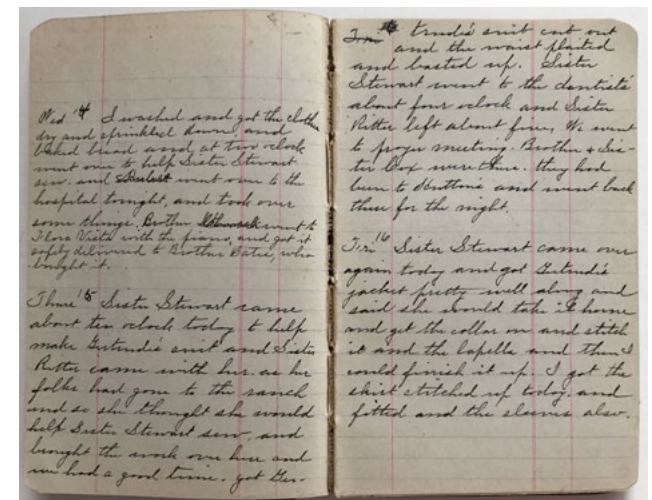 Wed 14 I washed and got the clothes
dry and sprinkled down, and
baked bread and at two oclock
went over to help Sister Stewart
sew. and went over to the
hospital tonight, and took over
some things. Brother went to
Flora Vista with the piano, and got it
safely delivered to Brother who
bought it.
Thurs 15 Sister Stewart came
about ten oclock today to help
make Gertrudie's suit and Sister
Ritter came with her as her
folks had gone to the ranch
and so she thought she would
help Sister Stewart sew, and
brought the work over here and
we had a good time. got Ger-
trudie's suit cut out
and the waist plaited
and basted up. Sister
Stewart went to the dentists
about four oclock and Sister
Ritter left about five, We went
to prayer meeting. Brother & Sis-
ter Cox were there. they had
been to Huttons and went back
there for the night.
Fri 16 Sister Stewart came over
again today and got Gertrudie's
jacket pretty well along and
said she would take it home
and get the collar on and stitch
it and the lapells and then I
could finish it up. I got the
skirt stitched up today. and
fitted and the sleeves also.